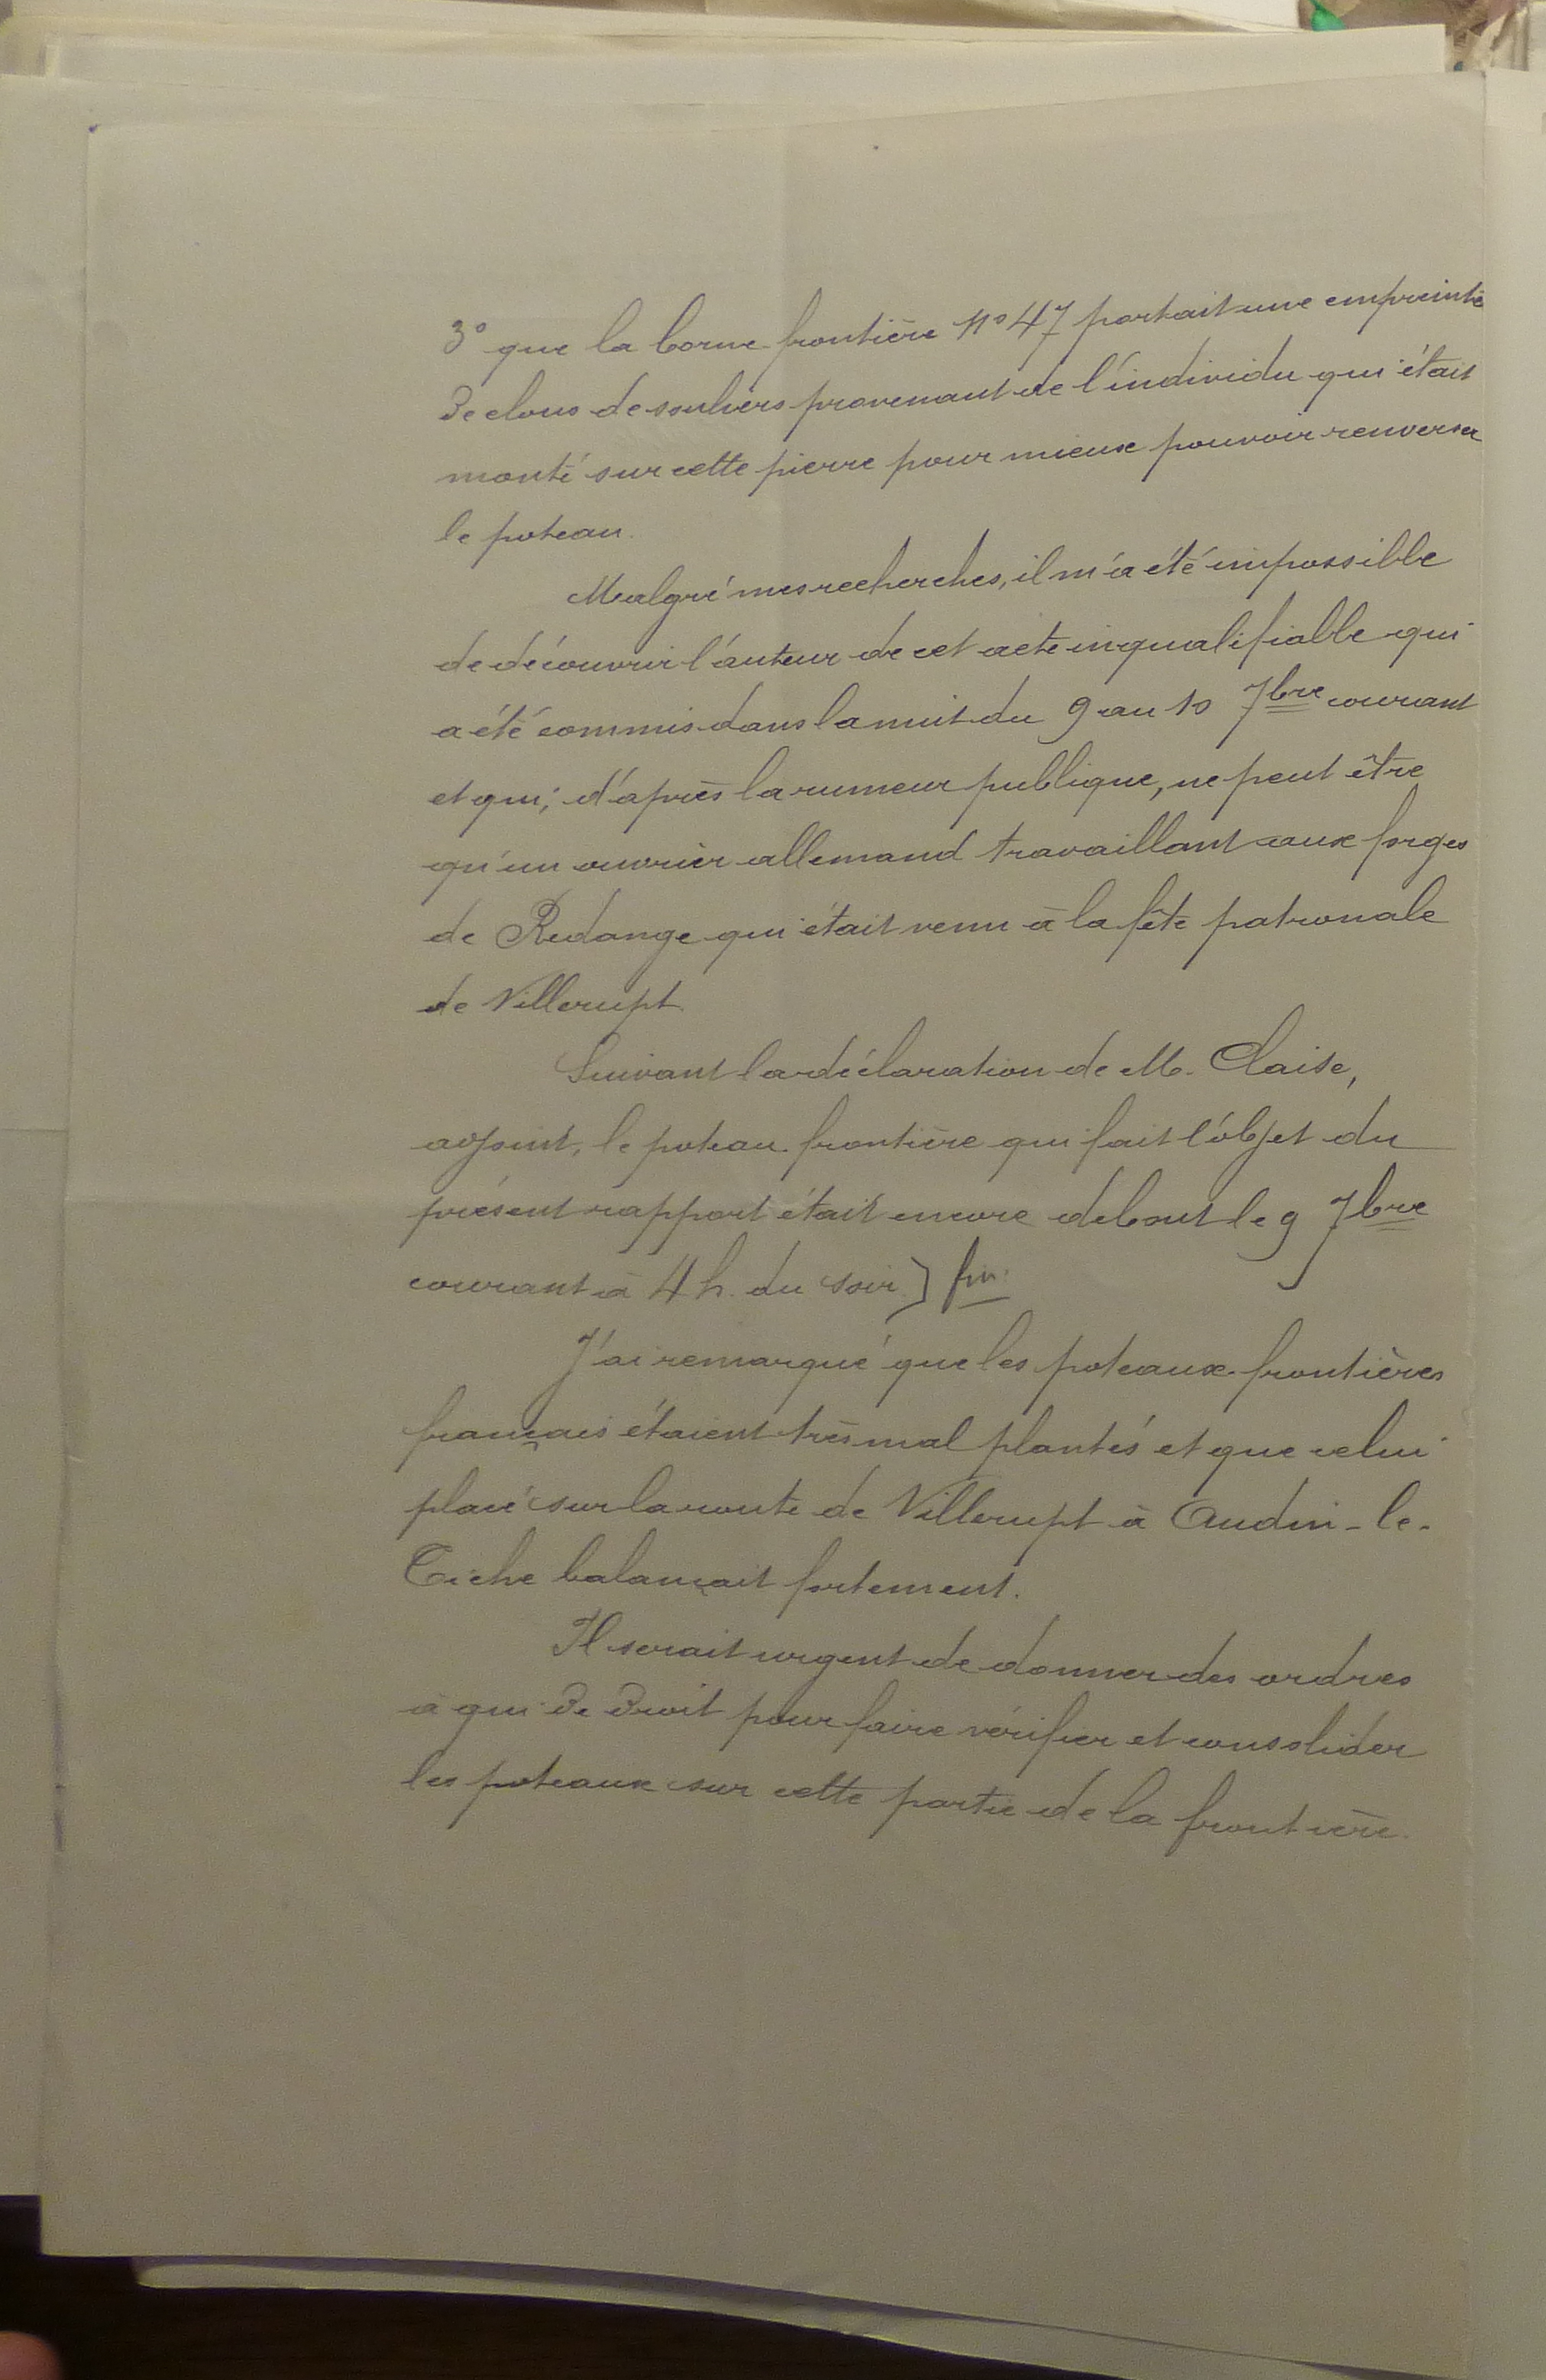 3° que la borne frontière N° 47 portait une empreinte
de clous de souliers provenant de l'individu qui était
monté sur cette pierre pour mieux pouvoir renverser
le poteau.
Malgré mes recherches, il m'a été impossible
de découvrir l'auteur de cet acte inqualifiable qui
a été commis dans la nuit du 9 au 10 7bre courant
et qui, d'après la rumeur publique, ne peut être
qu'un ouvrier allemand travaillant aux forges
de Redange qui était venu à la fête patronale
de Villerupt.
Suivant la déclaration de M. Claise,
adjoint, le poteau frontière qui fait l'objet du
présent rapport était encore debout le 9 7bre
courant à 4 h. du soir.] fin.
J'ai remarqué que les poteaux frontières
français étaient très mal plantés et que celui
placé sur la route de Villerupt à Audin-le-
Tiche balançait fortement.
Il serait urgent de donner des ordres
à qui de droit pour faire vérifier et consolider
les poteaux sur cette partie de la frontière.